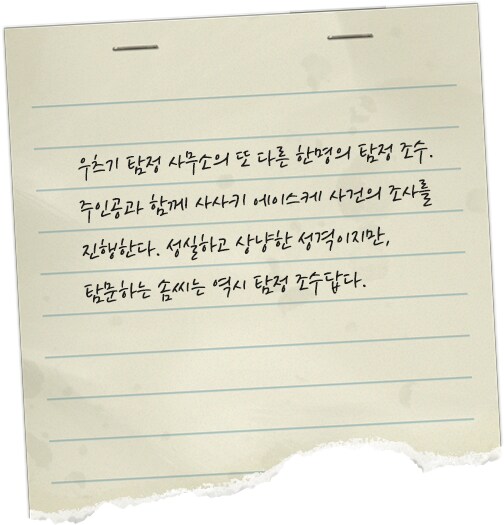 우츠기 탐정 사무소의 또 다른 한명의 탐정 조수.
주인공과 함께 사사키 에이스케 사건의 조사를
진행한다. 성실하고 상냥한 성격이지만,
탐문하는 솜씨는 역시 탐정 조수답다.